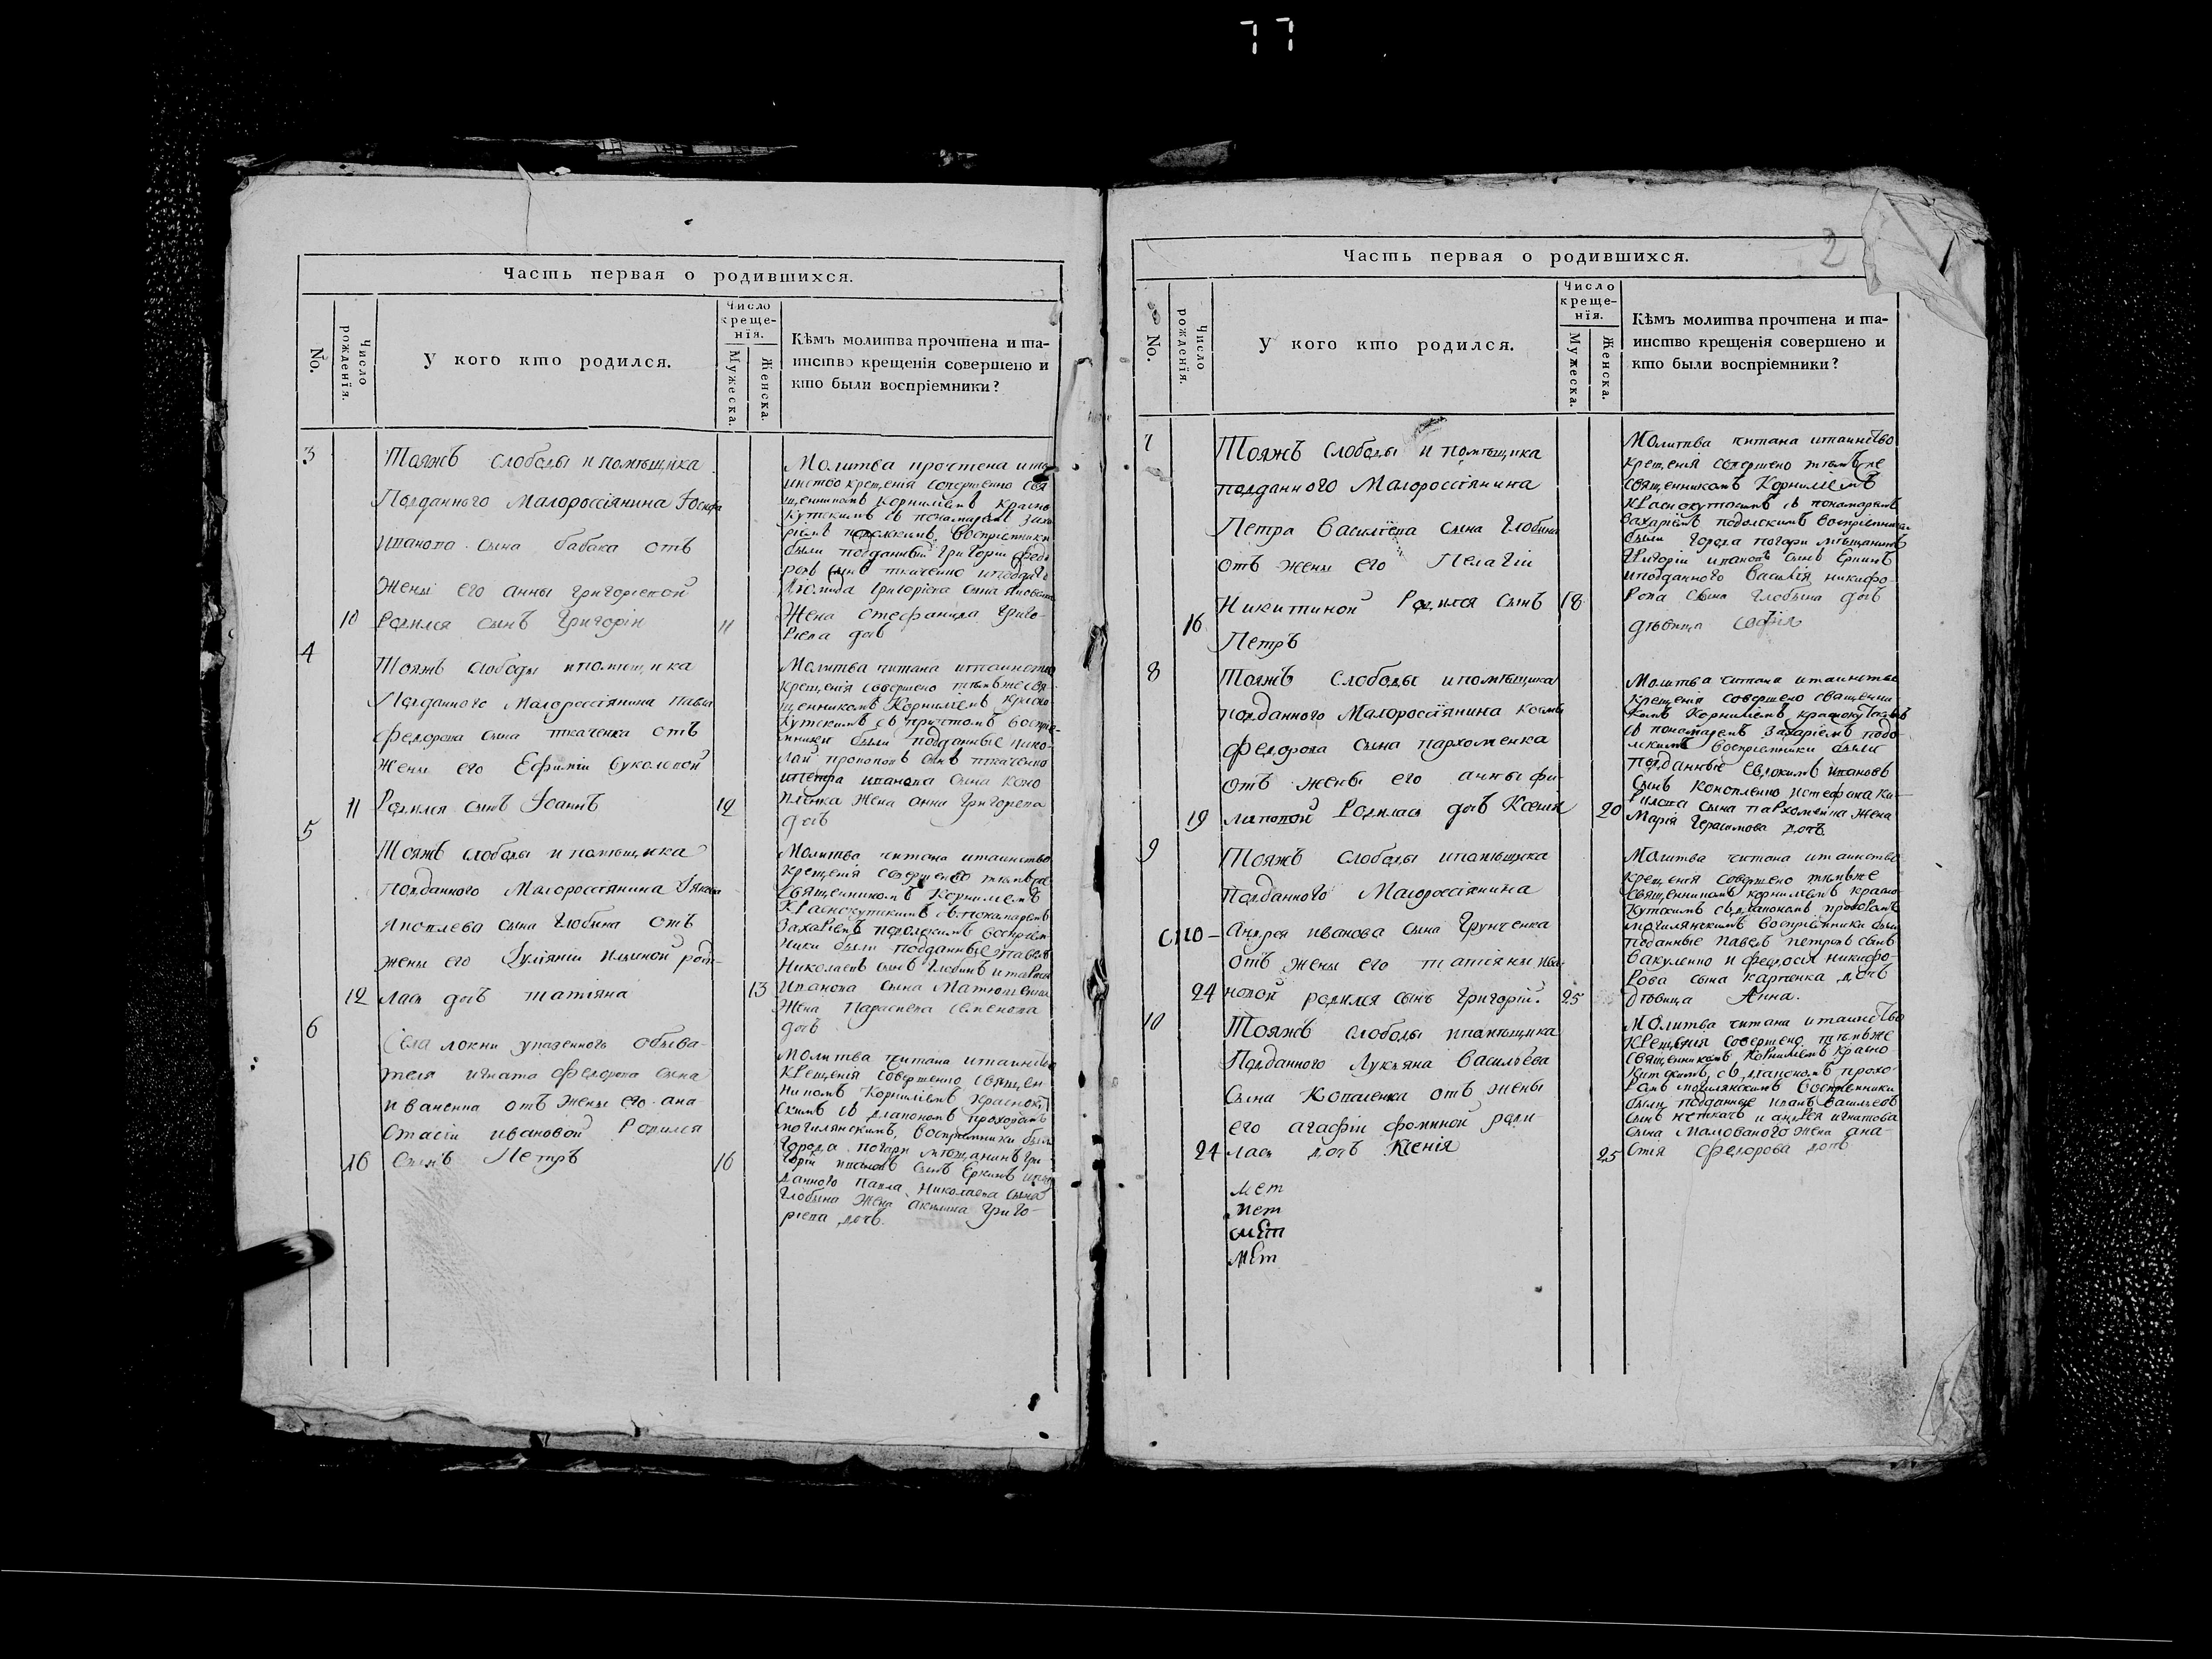 77
Часть первая о родившихся.
No.
Число рожденія.
У кого кто родился.
Число креще-
нія.
Мужеска.
Женска.
Кѣмъ молитва прочтена и та-
инство крещенія совершено и
кто были воспріемники?
3
Тояжъ слободы и помѣщика
Подданного Малороссіянина Іосифа
Иванова сына бабака отъ
Жены его анны григоріевой
10 Родился сынъ Григорій 11
Молитва прочтена и та-
инство крещенія совершенно свя
щенникомъ Корниліемъ Красно
Кутскимъ съ пономаремъ Заха
ріемъ подолскимъ, воспріемники
были подданный Григорій Федо
ровъ сынъ ткаченко и подданого
григоріева сына
Жена Стефанида Григо-
ріева дочь
4
Тояжъ слободы и помѣщика
Подданного Малороссіянина Павла
Федорова сына ткаченка отъ
Жены его Ефиміи
11 Родился сынъ Іоаннъ 12
Молитва читана и таинство
Крещенія совершено тѣмъже свя
щенникомъ Корниліемъ Красно
Кутскимъ съ причтомъ воспріе-
мники были подданные Нико-
лай прокоповъ сынъ ткаченко
и петра иванова сына Коно
пленка Жена анна Григорева
дочь
5
Тояжъ слободы и помѣщика
подданного Малороссіянина Іякова
Яковлева сына Глобина отъ
жены его Іуліяніи Ильиной роди-
12 лась дочь татіяна 13
Молитва читана и таинство
Крещенія совершенно тѣмъже
Священникомъ Корниліемъ
Краснокутскимъ съ пономаремъ
Захаріемъ подолскимъ воспріем
ники были подданные павелъ
Николаевъ сынъ Глобинъ и
Иванова сына Матюшенка
Жена Параскева Семенова
дочь
6
Села локни обыва-
теля игната Федорова сына
иваненка отъ жены его ана-
стасіи ивановой Родился
16 Сынъ Петръ 16
Молитва читана и таинство
Крещенія совершенно священ
никомъ Корниліемъ Краснокут
скимъ съ діакономъ прохоромъ
могилянскимъ, воспріемники были
Города погари мѣщанинъ Гри-
горій ивановъ сынъ Еркинъ и под
данного Павла Николаева сына
Глобина жена акилина Григо-
ріева дочь.
2
Часть первая о родившихся.
No.
Число рожденія.
У кого кто родился.
Число
креще-
нія.
Мужеска.
Женска.
Кѣмъ молитва прочтена и та-
инство крещенія совершено и
кто были воспріемники?
7
Тояжъ слободы и помѣщика
подданного Малороссіянина
Петра Василіева сына Глобина
отъ жены его Пелагіи
Никитиной Родился сынъ 18
16
Петръ
Молитва читана и таинство
крещенія совершено тѣмъже
священникомъ Корниліемъ
Краснокутскимъ съ пономаремъ
Захаріемъ подолскимъ воспріемники
были Города погари мѣщанинъ
Григорій ивановъ сынъ Еркинъ
и подданного Василія никифо-
рова сына Глобина дочь
дѣвица Софія
8
Тояжъ Слободы и помѣщика
подданного Малороссіянина космы
Федорова сына пархоменка
отъ жены его анны фи-
19 липовой Родилась дочь Ксенія 20
Молитва читана и таинство
крещенія совершено священни
комъ Корниліемъ краснокутскимъ
съ пономаремъ Захаріемъ подо
лскимъ воспріемники были
подданные Евдокимъ ивановъ
Сынъ Коноплено и стефана Ки-
рилова сына пархоменка жена
Марія Герасимова дочь
9
Тояжъ слободы и помѣщика
Подданного Малороссіянина
Андрея иванова сына Грунченка
отъ жены его татіяны ива-
24 новой родился сынъ григорій. 25
Молитва читана и таинство
Крещенія совершено тѣмъже
священникомъ корниліемъ красно-
Кутскимъ съ діакономъ прохоромъ
могилянскимъ воспріемники были
подданные павелъ петровъ сынъ
Вакуленко и федосія никифо-
рова сына карпенка дочь
дѣвица Анна.
10
Тояжъ слободы и помѣщика
Подданного Лукьяна Васильева
Сына Коваленка отъ жены
его агафіи фоминой роди-
24 лась дочь Ксенія 25
Молитва читана и таинство
Крещенія совершено тѣмъже
священникомъ Корниліемъ красно
Кутскимъ съ діакономъ прохо-
ромъ могилянскимъ воспріемники
были подданные иванъ васильевъ
сынъ и андрея игнатова
сына Малованого жена ана-
стасія Федорова дочь